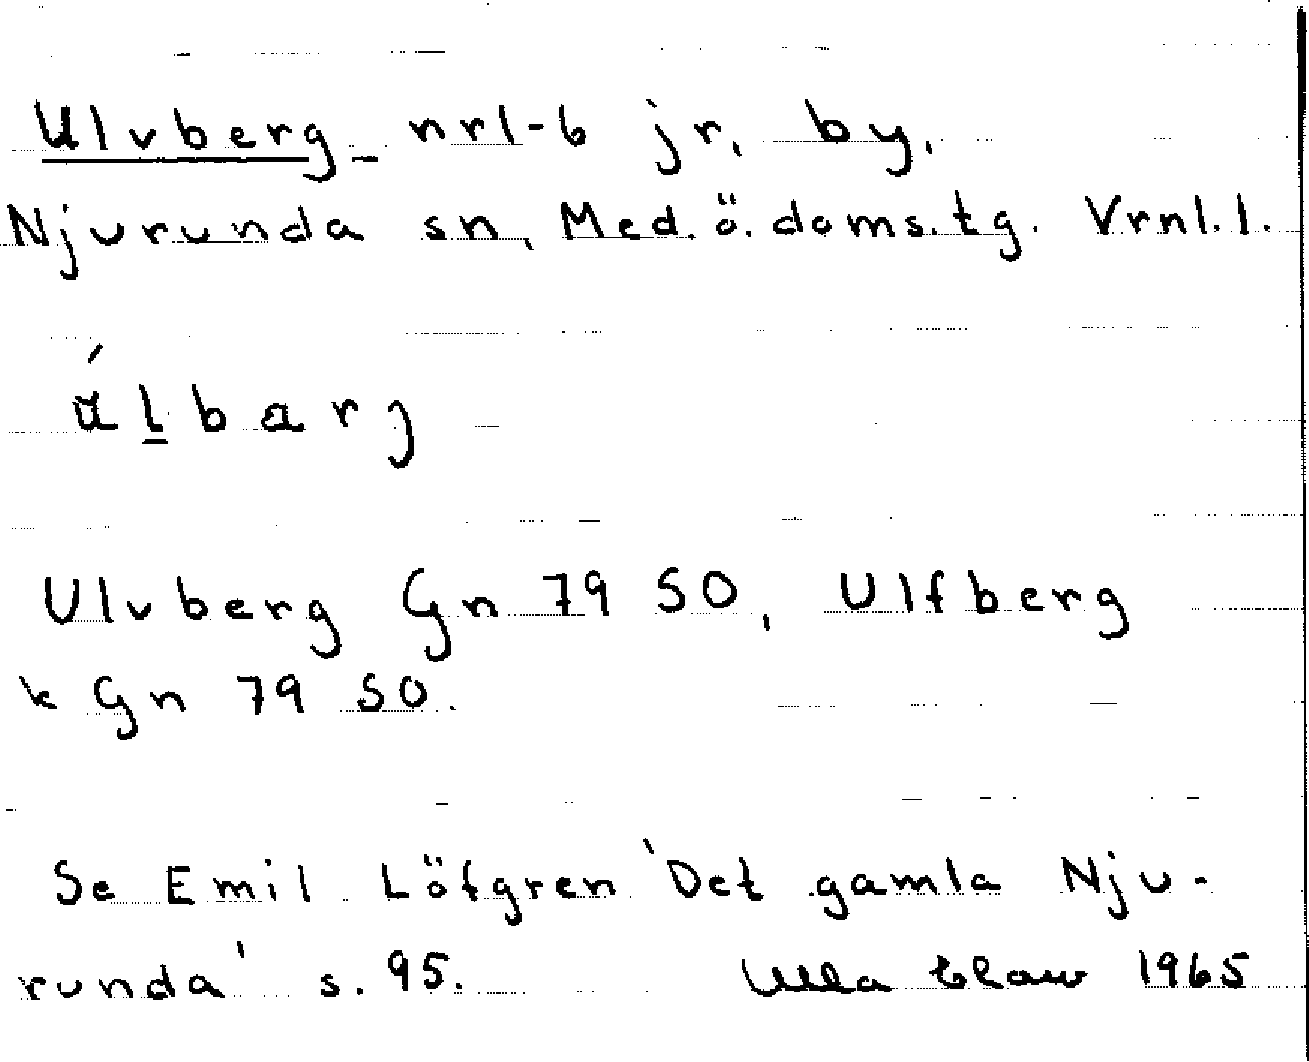 Ulvberg nr1-6 jr, by,
Njurunda sn, Med. ö. doms. tg. Vrnl. l.
álbarj
Ulvberg Gn 79 SO, Ulfberg
k Gn 79 SO.
Se Emil Löfgren 'Det gamla Nju-
runda' s. 95. Ulla 1965